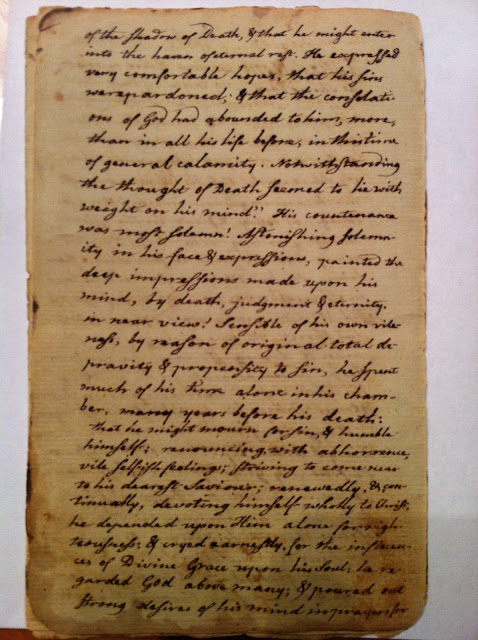 of the Shadow of Death, & that he might enter
into the haven of eternal rest. He expressed
very comfortable hopes, that his sins
were pardoned; & that the consolati-
ons of God had abounded to him, more,
than in all his life before, in this time
of general calamity. Notwithstanding
the thought of Death seemed to lie with
weight on his mind!! His countenance
was most solemn! Astonishing solemn-
ity in his face & expressions, painted the
deep impressions made upon his
mind, by death, judgment & eternity,
in near view! Sensible of his own vile-
ness, by reason of original total de-
pravity & propensity to sin, he spent
much of his time alone in his cham-
ber, many years before his death:
that he might mourn for sin, & humble
himself; renouncing, with abhorrence,
vile selfish feelings; striving to come near
to his dearest Saviour; renewedly, & con-
tinually, devoting himself wholly to Christ;
he depended upon Him alone for righ-
teousness: & cryed earnestly, for the influen-
ces of Divine Grace upon his Soul: he re-
garded God above many; & poured out
strong desires of his mind in prayer for